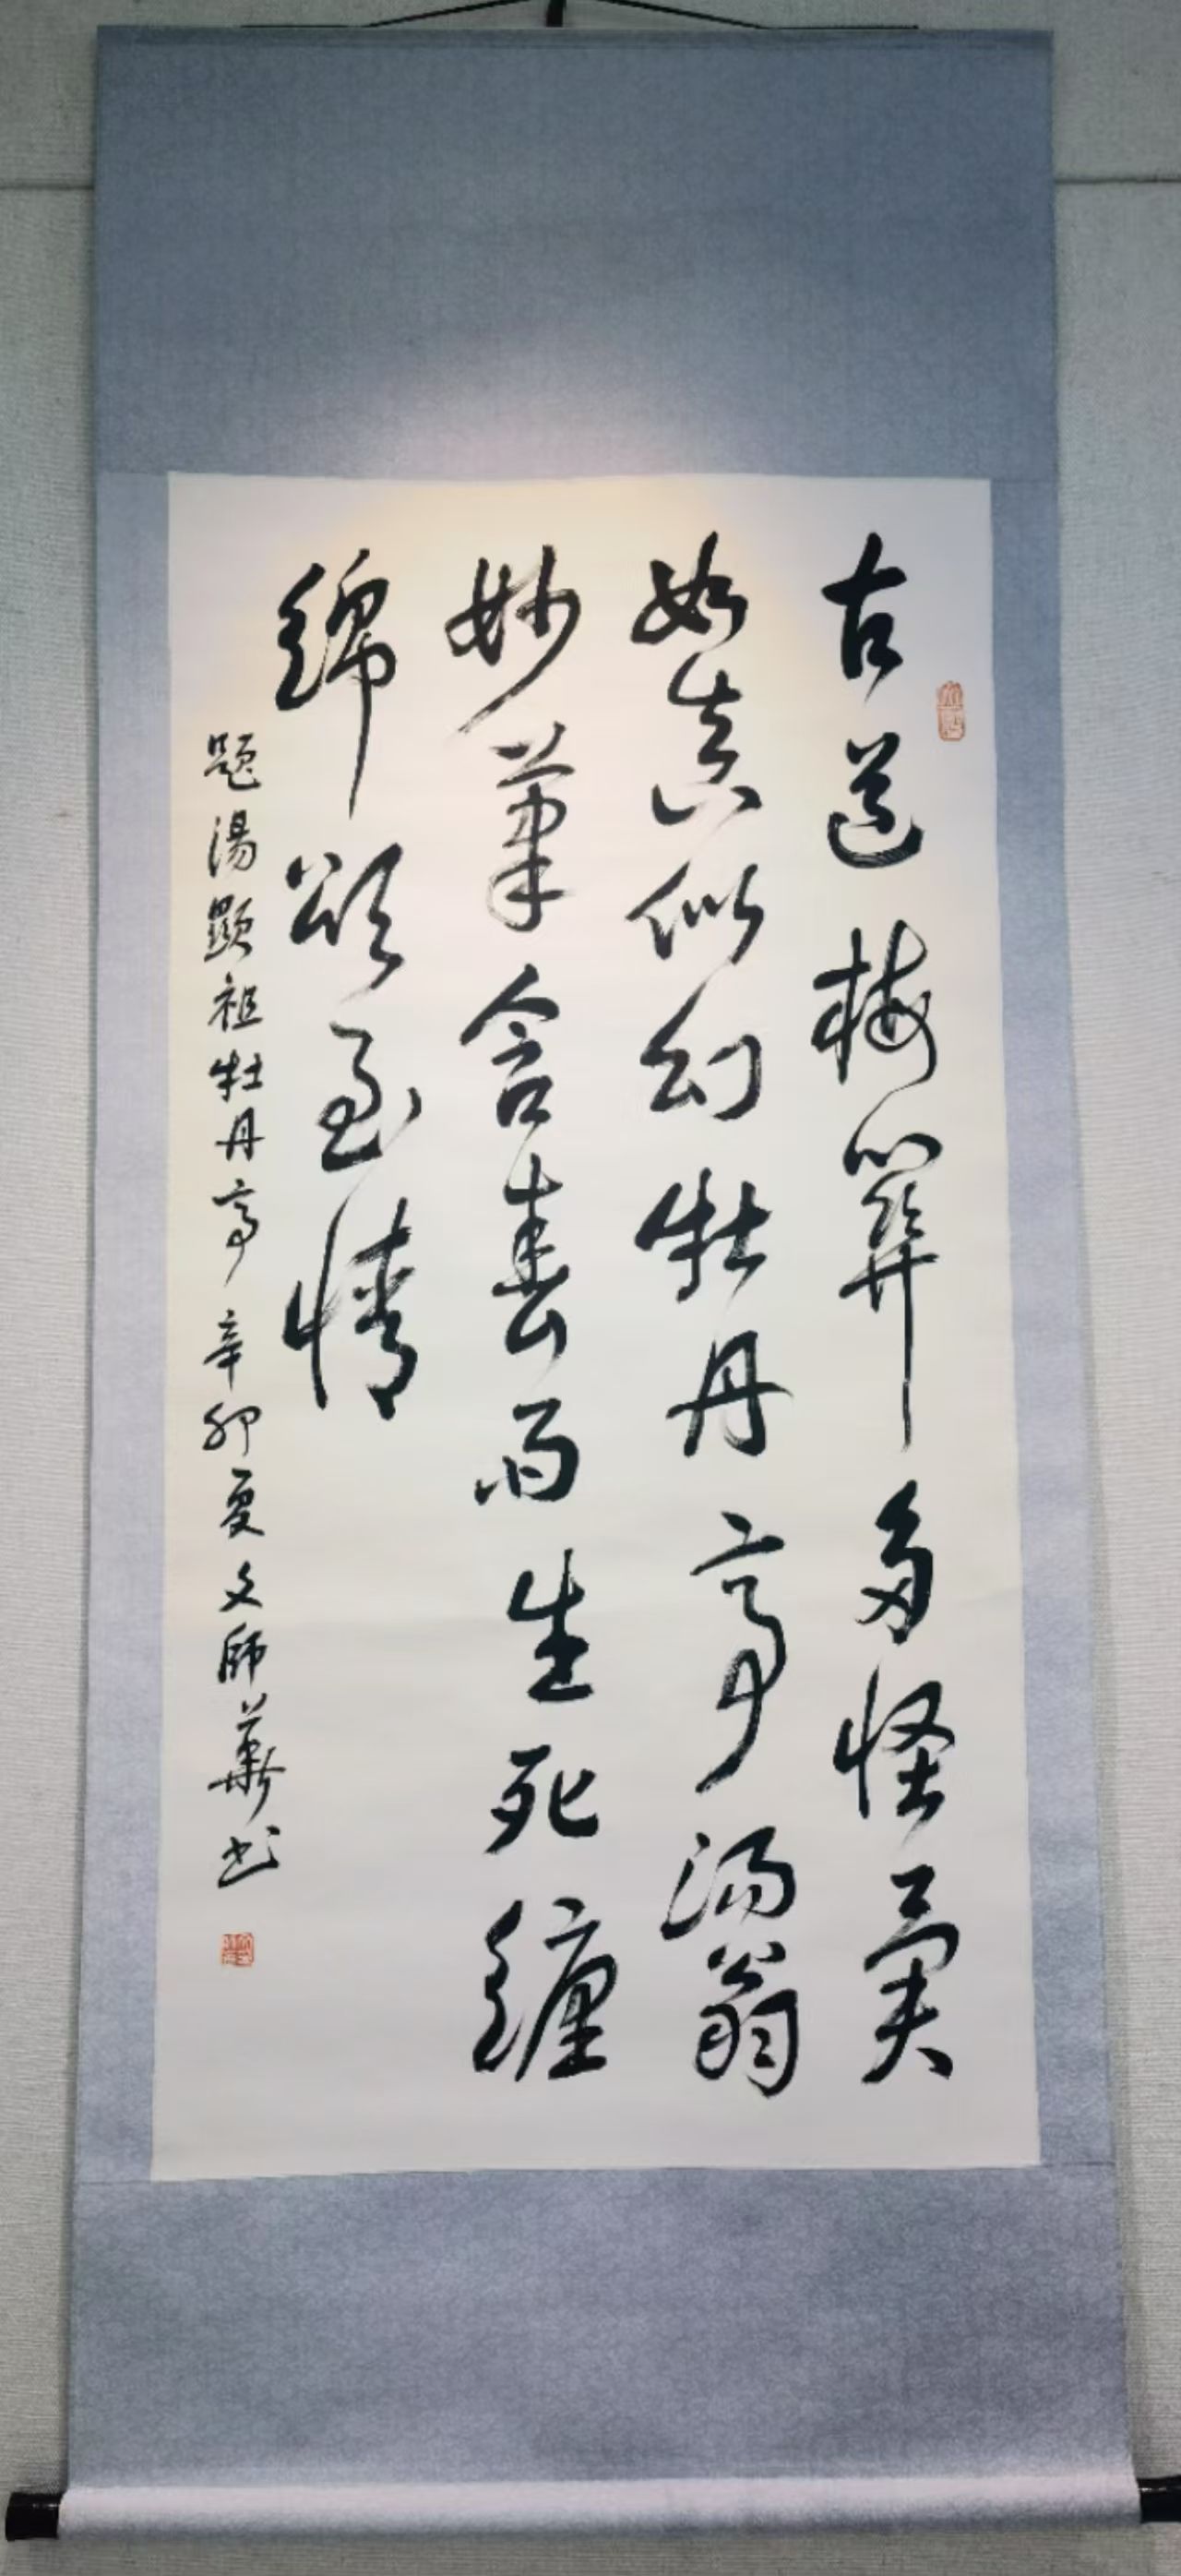 古道梅關多怪異
如真似幻牡丹亭湯翁
妙筆含春雨生死纏
綿頌至情
題湯顯祖牡丹亭 辛卯夏文師華书